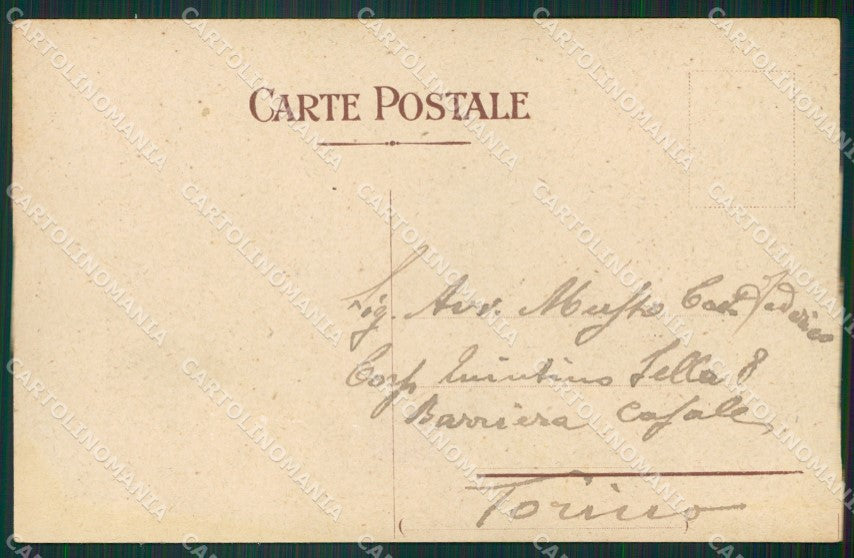 CARTE POSTALE
Sig. Avv. Musso Cav. Federico
Corso Quintino Sella 8
Barriera Casale
Torino
CARTOLINOMANIA